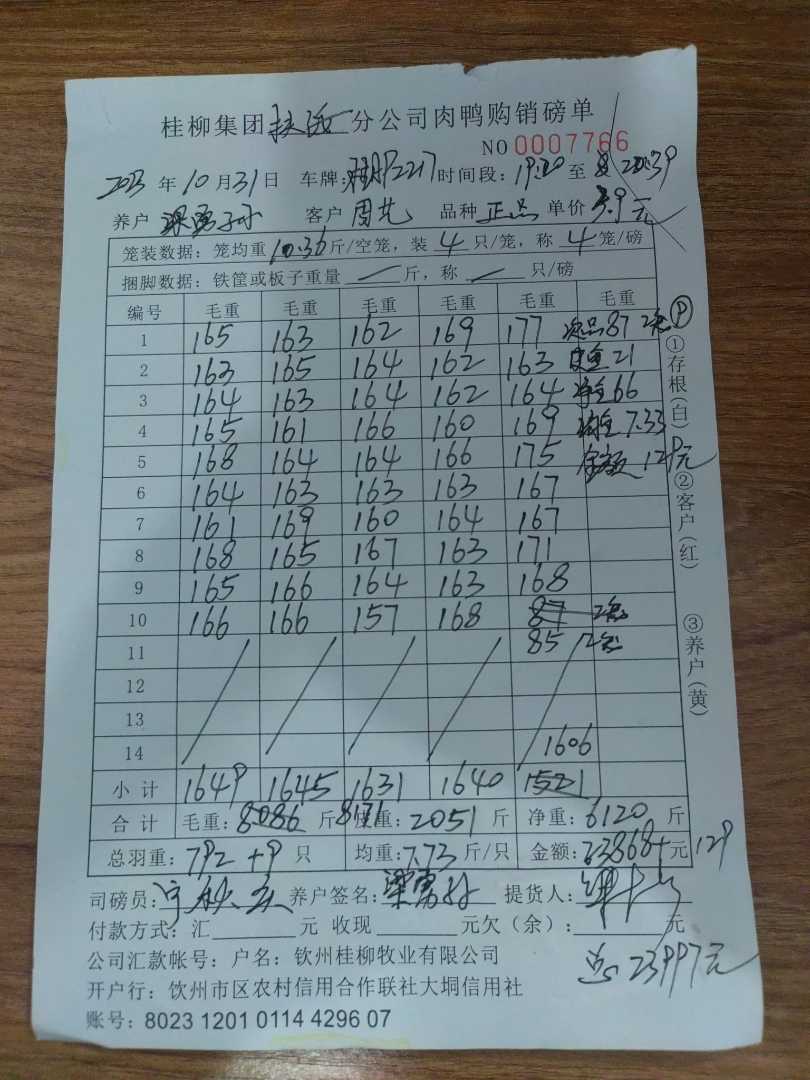 桂柳集团 分公司肉鸭购销磅单
NO 0007766
2023 年 10 月 31 日 车牌: 2217 时间段: 19:20 至 20:39
养户 客户 周 品种 正品 单价 3.9 元
笼装数据: 笼均重 10.36 斤/空笼, 装 4 只/笼, 称 4 笼/磅
捆脚数据: 铁筐或板子重量 斤, 称 只/磅
编号 毛重 毛重 毛重 毛重 毛重 毛重
1 165 163 162 169 177 次品 87 2笼
2 163 165 164 162 163 皮重 21
3 164 163 164 162 164 净重 66
4 165 161 166 160 169 均重 7.33
5 168 164 164 166 175 金额 129元
6 164 163 163 163 167
7 161 169 160 164 167
8 168 165 167 163 171
9 165 166 164 163 168
10 166 166 157 168 87 2笼
11 85 2笼
12
13
14 1606
小计 1649 1645 1631 1640 1521
合计 毛重: 8086 斤 8171 重: 2051 斤 净重: 6120 斤
总羽重: 792 + 9 只 均重: 7.73 斤/只 金额: 23868 + 元 129
司磅员: 养户签名: 提货人:
付款方式: 汇 元 收现 元欠(余): 元
公司汇款帐号: 户名: 钦州桂柳牧业有限公司
总 23997元
开户行: 钦州市区农村信用合作联社大垌信用社
账号: 8023 1201 0114 4296 07
①存根(白) ②客户(红) ③养户(黄)